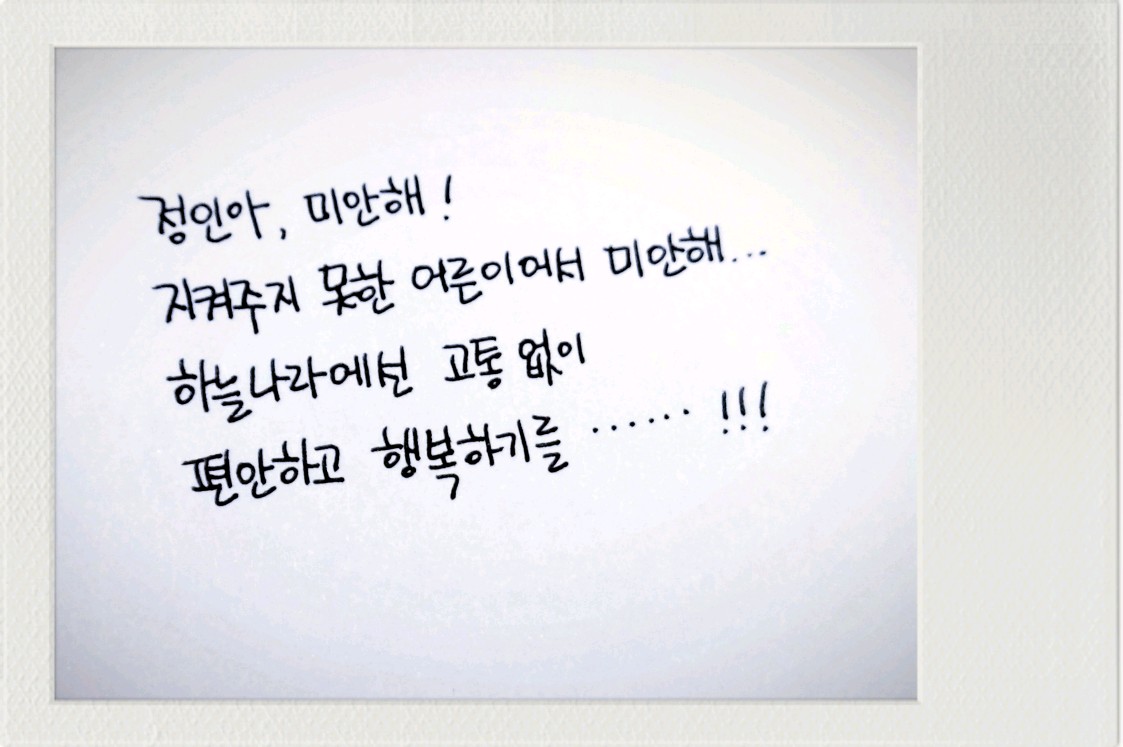 정인아, 미안해!
지켜주지 못한 어른이어서 미안해...
하늘나라에선 고통 없이
편안하고 행복하기를 ······ !!!